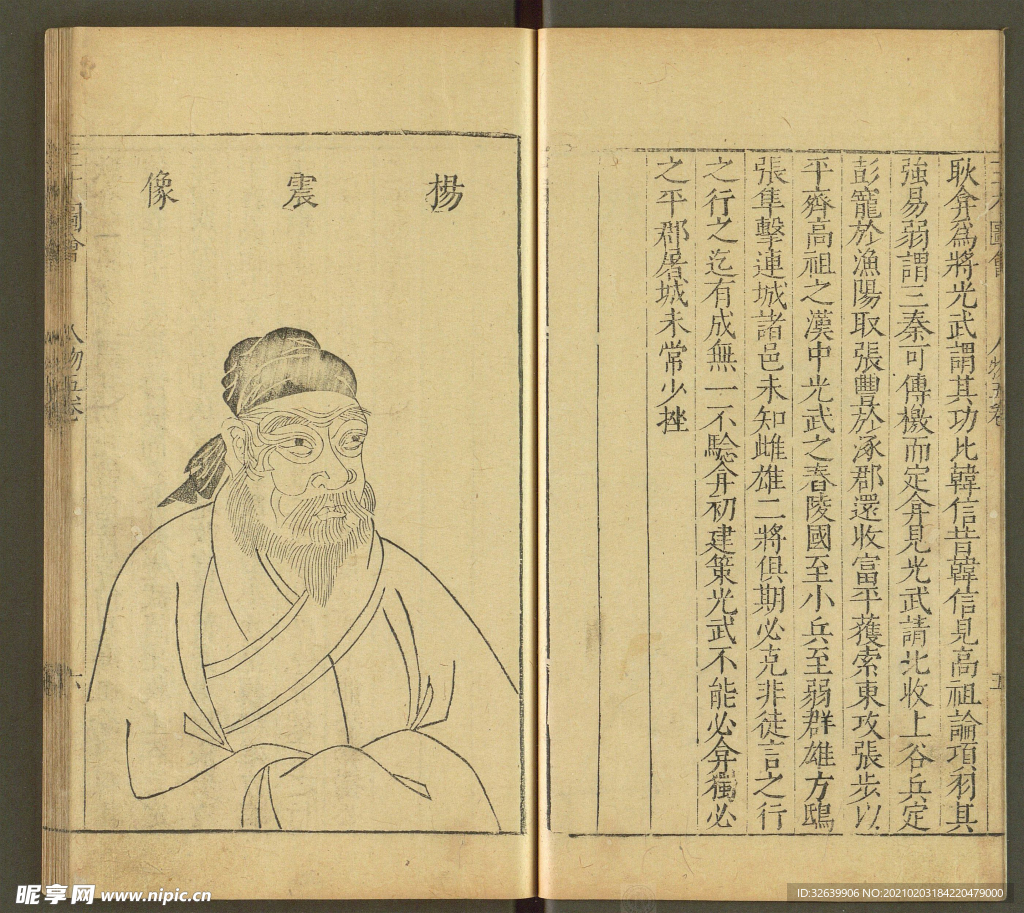 耿弇為將光武謂其功比韓信昔韓信見高祖論項羽其
強易弱謂三秦可傳檄而定弇見光武請北收上谷兵定
彭寵於漁陽取張豐於涿郡還收富平獲索東攻張步以
平齊高祖之漢中光武之舂陵國至小兵至弱群雄方鴟
張隼擊連城諸邑未知雌雄二將俱期必克非徒言之行
之行之迄有成無一不驗弇初建策光武不能必弇獨必
之平郡屠城未常少挫
楊震像
圖會 人物五卷 六
昵享网 www.nipic.cn
ID:32639906 NO:20210203184220479000